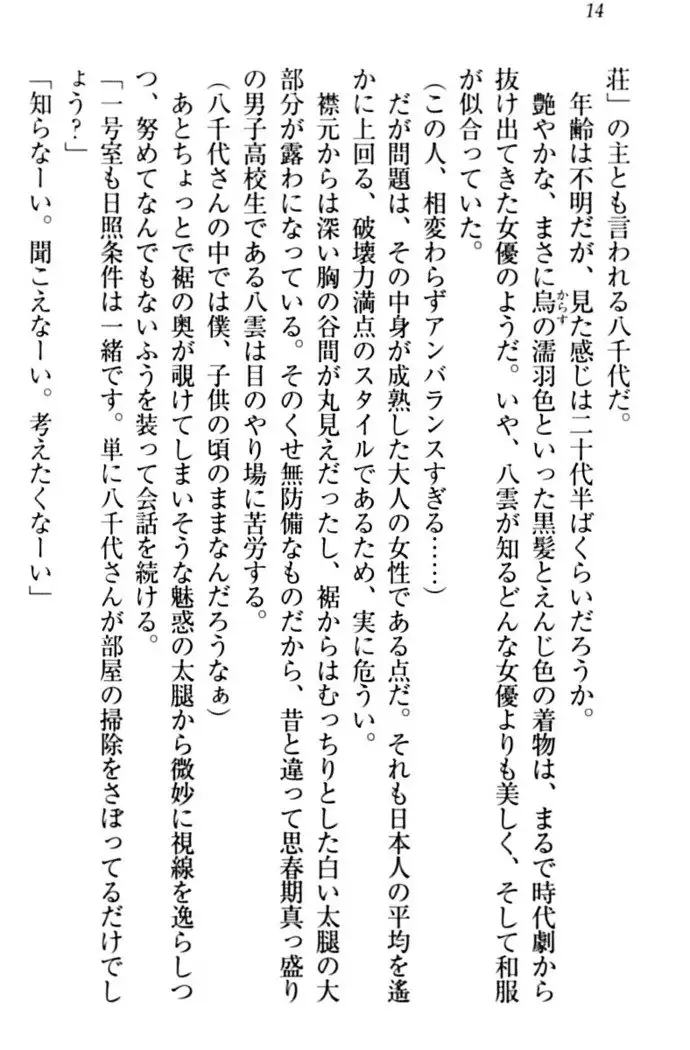 14
荘」の主とも言われる八千代だ。
年齢は不明だが、見た感じは二十代半ばくらいだろうか。
艶やかな、まさに烏の濡羽色といった黒髪とえんじ色の着物は、まるで時代劇から
からす
抜け出てきた女優のようだ。いや、八雲が知るどんな女優よりも美しく、そして和服
が似合っていた。
(この人、相変わらずアンバランスすぎる……)
だが問題は、その中身が成熟した大人の女性である点だ。それも日本人の平均を遙
かに上回る、破壊力満点のスタイルであるため、実に危うい。
襟元からは深い胸の谷間が丸見えだったし、裾からはむっちりとした白い太腿の大
部分が露わになっている。そのくせ無防備なものだから、昔と違って思春期真っ盛り
の男子高校生である八雲は目のやり場に苦労する。
(八千代さんの中では僕、子供の頃のままなんだろうなぁ)
あとちょっとで裾の奥が覗けてしまいそうな魅惑の太腿から微妙に視線を逸らしつ
つ、努めてなんでもないふうを装って会話を続ける。
「一号室も日照条件は一緒です。単に八千代さんが部屋の掃除をさぼってるだけでし
ょう？」
「知らなーい。聞こえなーい。考えたくなーい」